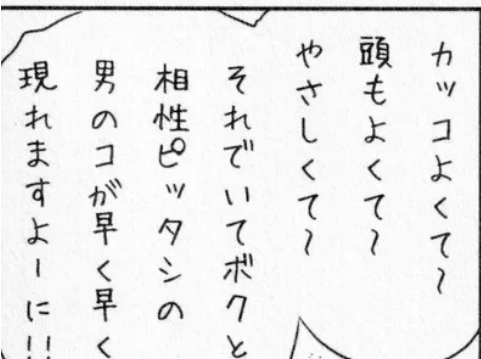 カッコよくて〜
頭もよくて〜
やさしくて〜
それでいてボクと
相性ピッタシの
男のコが早く早く
現れますよーに!!